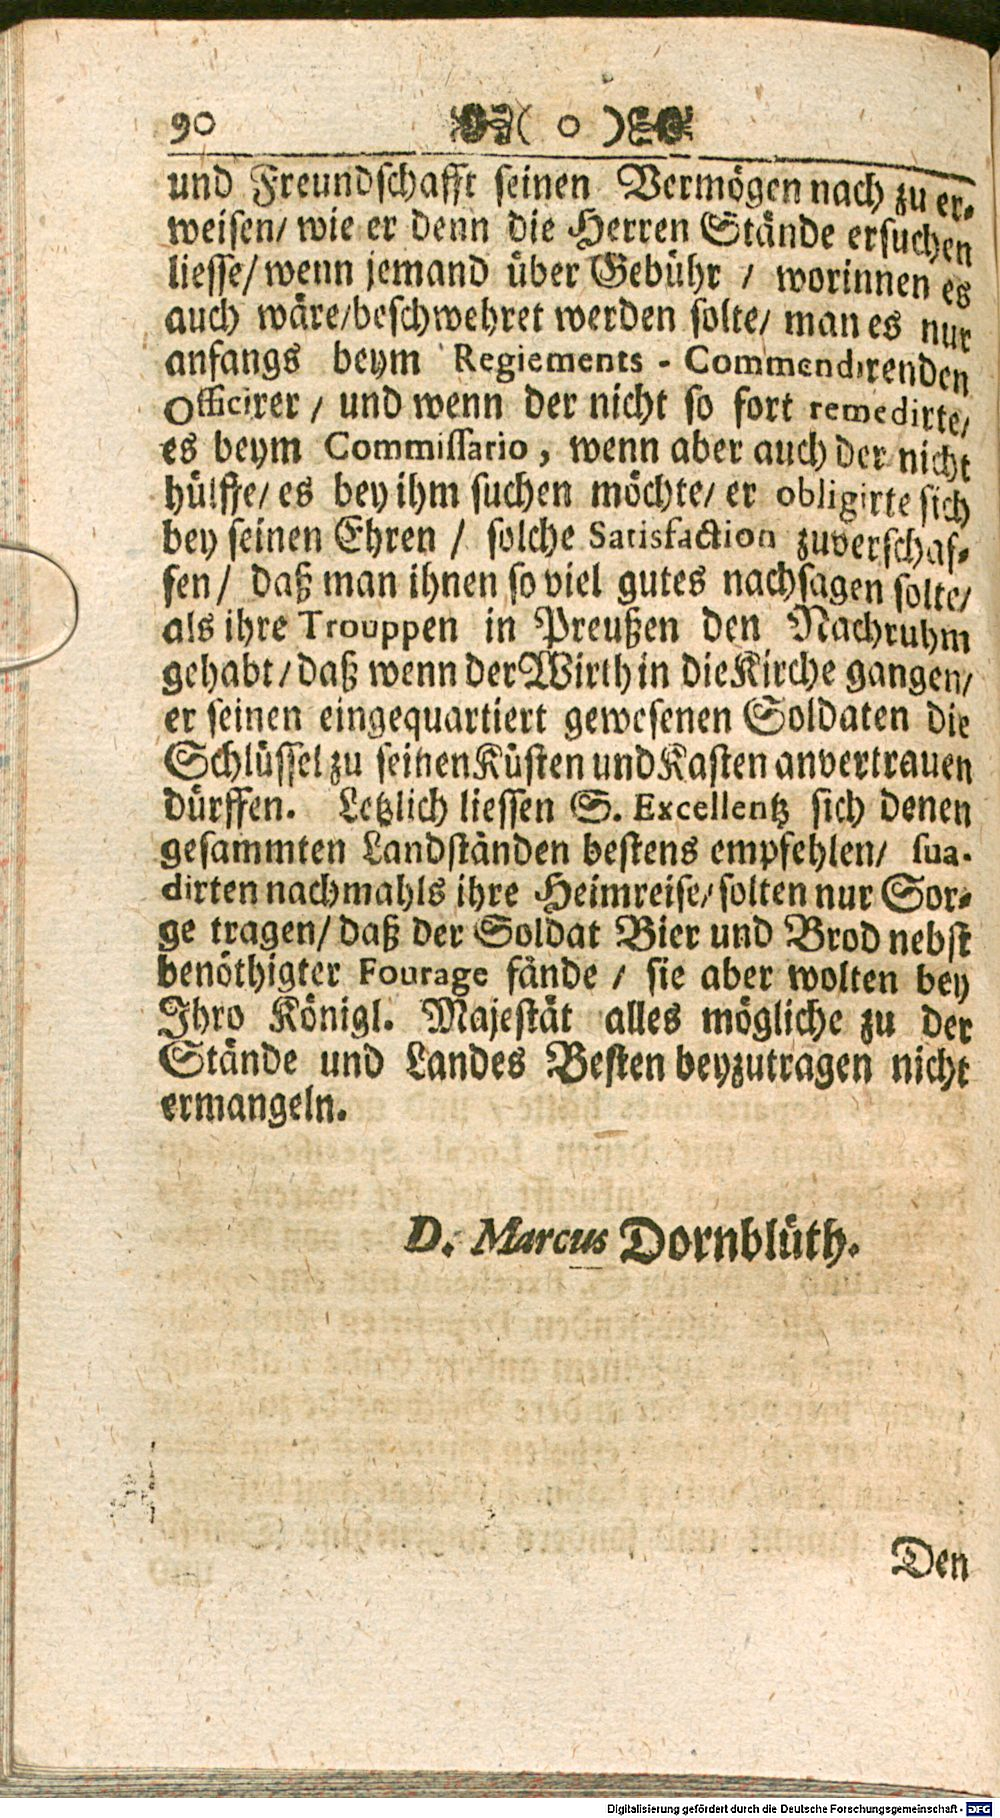 90 ( o )
und Freundschafft seinen Vermögen nach zu er-
weisen/ wie er denn die Herren Stände ersuchen
liesse/ wenn jemand über Gebühr / worinnen es
auch wäre/ beschwehret werden solte/ man es nur
anfangs beym Regiements - Commendirenden
Officirer / und wenn der nicht so fort remedirte/
es beym Commissario, wenn aber auch der nicht
hülffe/ es bey ihm suchen möchte/ er obligirte sich
bey seinen Ehren / solche Satisfaction zuverschaf-
fen/ daß man ihnen so viel gutes nachsagen solte/
als ihre Trouppen in Preußen den Nachruhm
gehabt/ daß wenn der Wirth in die Kirche gangen/
er seinen eingequartiert gewesenen Soldaten die
Schlüssel zu seinen Küsten und Kasten anvertrauen
dürffen. Letzlich liessen S. Excellentz sich denen
gesammten Landständen bestens empfehlen/ sua-
dirten nachmahls ihre Heimreise/ solten nur Sor-
ge tragen/ daß der Soldat Bier und Brod nebst
benöthigter Fourage fände / sie aber wolten bey
Ihro Königl. Majestät alles mögliche zu der
Stände und Landes Besten beyzutragen nicht
ermangeln.
D. Marcus Dornblüth.
Den
Digitalisierung gefördert durch die Deutsche Forschungsgemeinschaft - DFG